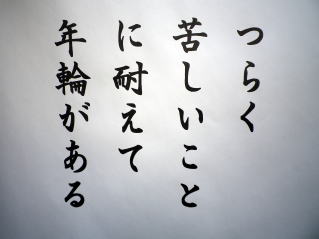 つらく
苦しいこと
に耐えて
年輪がある